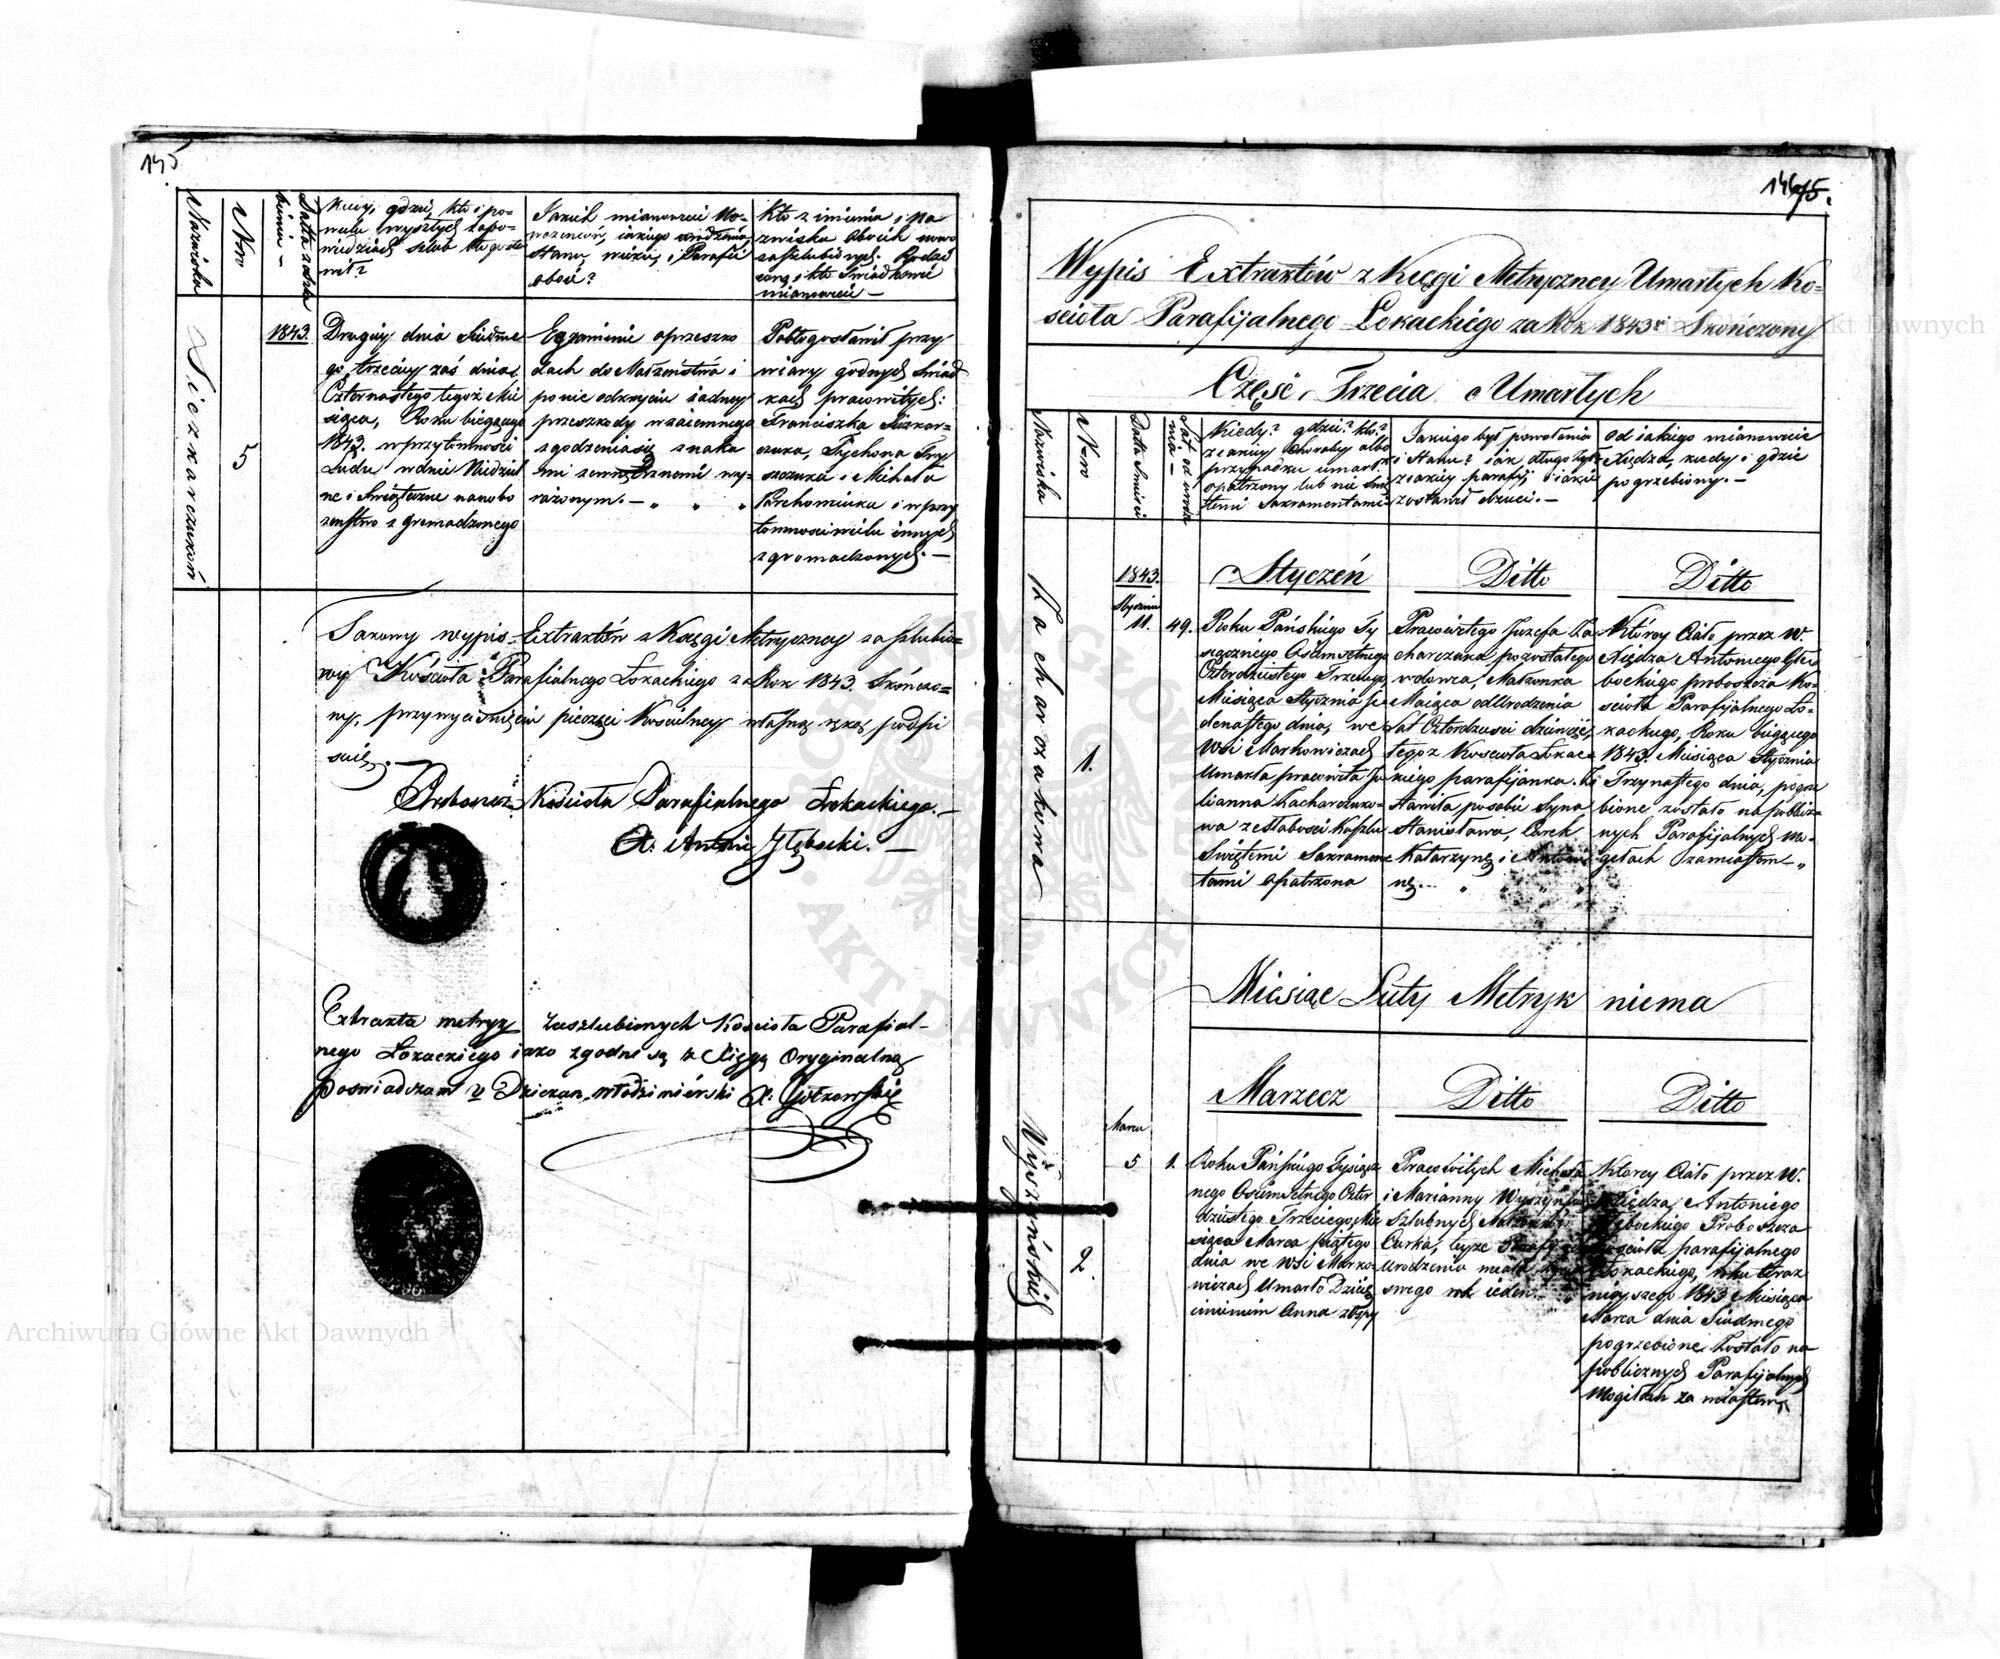 145
Nazwiska
Nro
Datta zaślu
bienia -
Kiedy, gdzie, kto i po
wielu wyszłych zapo-
wiedziach szlub błogosła
wił?
Jakich mianowicie No-
wożeńców, iakiego urodzenia,
stanu, wieku, i Parafii
oboie?
Kto z imienia i Na
zwiska oboich nowo
zaszlubionych Rodzi
ców, i kto Świadkowie
mianowicie -
Sieczkarczuków
5
1843.
Drugiey dnia Siódme
go, trzeciey zaś dnia
Czternastego tegoż Mie
siąca, Roku bieżącego
1843. w przytomności
Ludu w dnie Niedziel
ne i Świąteczne na nabo
żeństwo zgromadzonego
Egzaminie o przeszko
dach do Małżeństwa i
po nie odkryciu żadney
przeszkody wzaiemnego
zgodzenia się znaka
mi zewnętrznemi wy-
rażonym. - „ „ „
Pobłogosławił przy
wiary godnych Świad
kach pracowitych:
Franciszka
Tychona Try
i Michała
Parchomiuka i w przy
tomności wielu innych
zgromadzonych. -
Takowy wypis Extraktów z Księgi Metryczney zaszlubio=
ny Kościoła Parafialnego Łokackiego za Rok 1843. Skończo-
ny, przy wyciśnięciu pieczęci Kościelney własną ręką podpi
suię. -
Proboszcz Kościoła Parafialnego Łokackiego. -
X. Antoni Głębocki. -
Extrakta metryk zaszlubionych Kościoła Parafial-
nego Łokackiego iako zgodne są z Xięgą Oryginalną
poświadczam Dziekan Włodzimiérski X.
146
75.
Wypis Extraktów z Księgi Metryczney Umarłych Ko=
ścioła Parafijalnego Łokackiego za Rok 1843 Skończony
Część Trzecia Umarłych
Nazwiska
Nro
Datta Śmierci
Lat od urodze
nia -
Kiedy? gdzie? kto?
z iakiey choroby albo
przypadku umarł?
opatrzony lub nie Świę
temi Sakramentami
Jakiego był powołania
i Stanu? iak długo żył?
z iakiey parafij i iakie
zostawił dzieci. -
Od iakiego mianowicie
Xiędza, kiedy i gdzie
pogrzebiony. -
Styczeń Ditto Ditto
Zacharczukowa
1.
1843.
Stycznia
11.
49.
Roku Pańskiego Ty
siącznego Osiemsetnego
Czterdziestego Trzeciego
Miesiąca Stycznia Je
denastego dnia, we
Wsi Markowiczach
Umarła pracowita Ju
lianna Zacharczuko-
wa z słabości Kaszlu
Świętemi Sakramen
tami opatrzona
Pracowitego Józefa Za
charczuka pozostałego
wdowca, Małżonka
Maiąca od Urodzenia
Lat Czterdzieści dziewięć,
tegoż Kościoła Łokac=
kiego parafijanka. Zo
stawiła po sobie Syna
Stanisława, Córek
Katarzynę i Antoni
nę. - „ „ „ „
Którey Ciało przez W.
Xiędza Antoniego Głę
bockiego proboszcza Ko=
ścioła Parafijalnego Ło-
kackiego, Roku bieżącego
1843. Miesiąca Stycznia
Trzynastego dnia, pogrze
bione zostało na publicz=
nych Parafijalnych Mo-
giłach za miastem - „
Miesiąc Luty Metryk niema
Marzecz Ditto Ditto
Wyszyńskich
2.
Marca
5
1.
Roku Pańskiego Tysiącz
nego Osiemsetnego Czter
dziestego Trzeciego, Mie
siąca Marca piątego
dnia we Wsi Marko
wiczach Umarło Dziecię
imieniem Anna z Ospy
Pracowitych Michała
i Marianny Wyszyńskich
Szlubnych Małżonków
Córka, teyże Parafij
urodzenia miała życia
swego rok ieden.
Którey Ciało przez W.
Xiędza Antoniego
Głębockiego Proboszcza
Kościoła parafijalnego
Łokackiego, roku teraz
nieyszego 1843 Miesiąca
Marca dnia Siódmego
pogrzebione zostało na
publicznych Parafijalnych
Mogiłach za miastem
Archiwum Główne Akt Dawnych